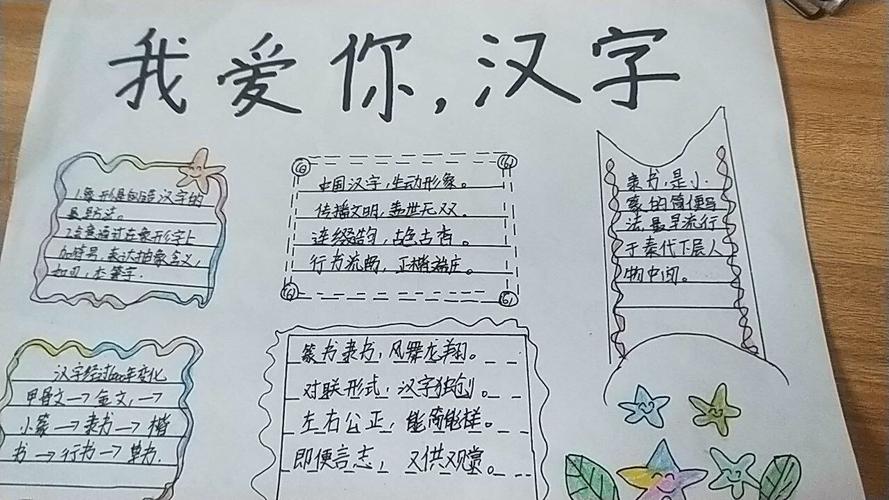 我爱你,汉字
1.象形是创造汉字的
最早方法。
2.会意通过在象形字上
加符号,表达抽象含义,
如刃,本等字.
中国汉字,生动形象。
传播文明,盖世无双。
连缀韵句,古色古香。
行书流畅,正楷端庄。
隶书,是小
篆的简便写
法,最早流行
于秦代下层人
物中间。
汉字经过年变化
甲骨文→金文,→
小篆→隶书→楷
书→行书→草书.
篆书隶书,风舞龙翔。
对联形式,汉字独创。
左右公正,能简能样。
即便言志,又供观赏。